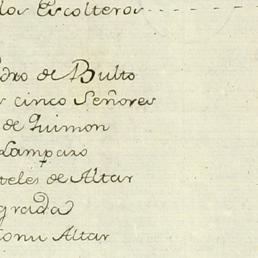 los Escolteros
dro de Bulto
s cinco Señores
de Quimon
Lamparo
teles de Altar
grada
monu Altar